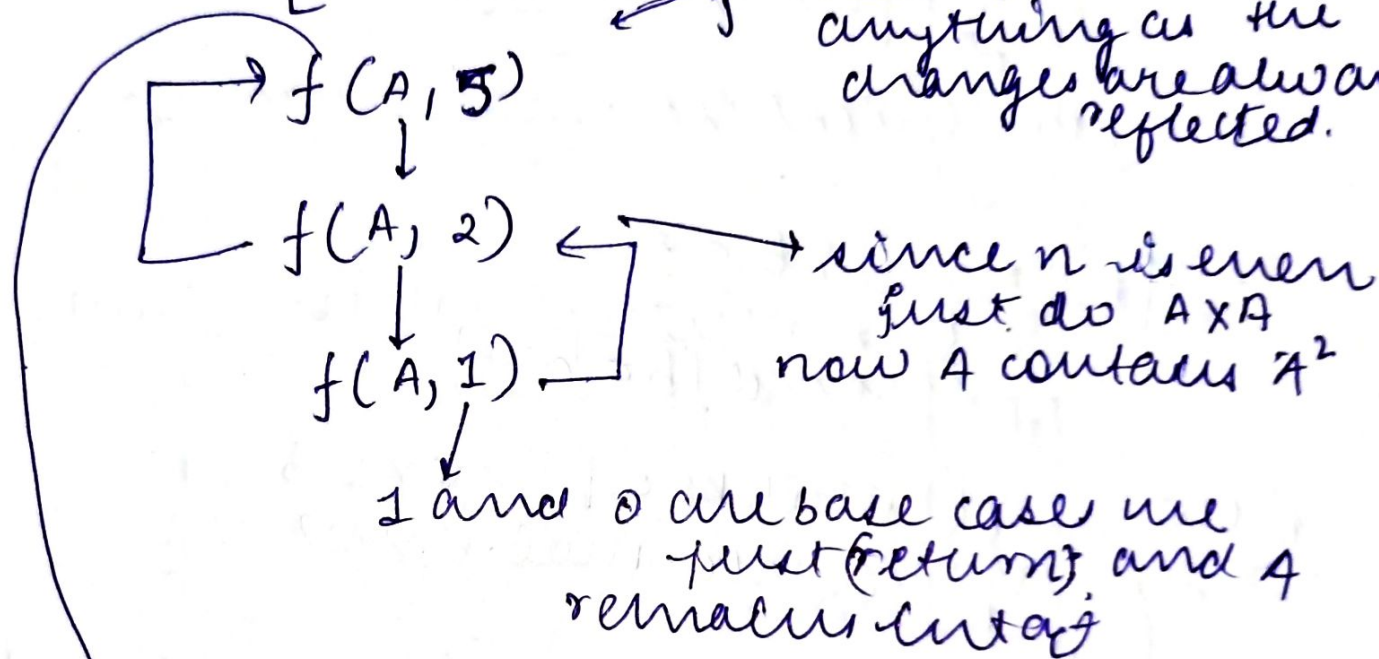 anything as the
f(A, 5)
changes are alwa
reflected.
f(A, 2)
since n is even
just do A X A
now A contains A²
f(A, 1)
1 and 0 are base case we
just {return} and A
remains intact